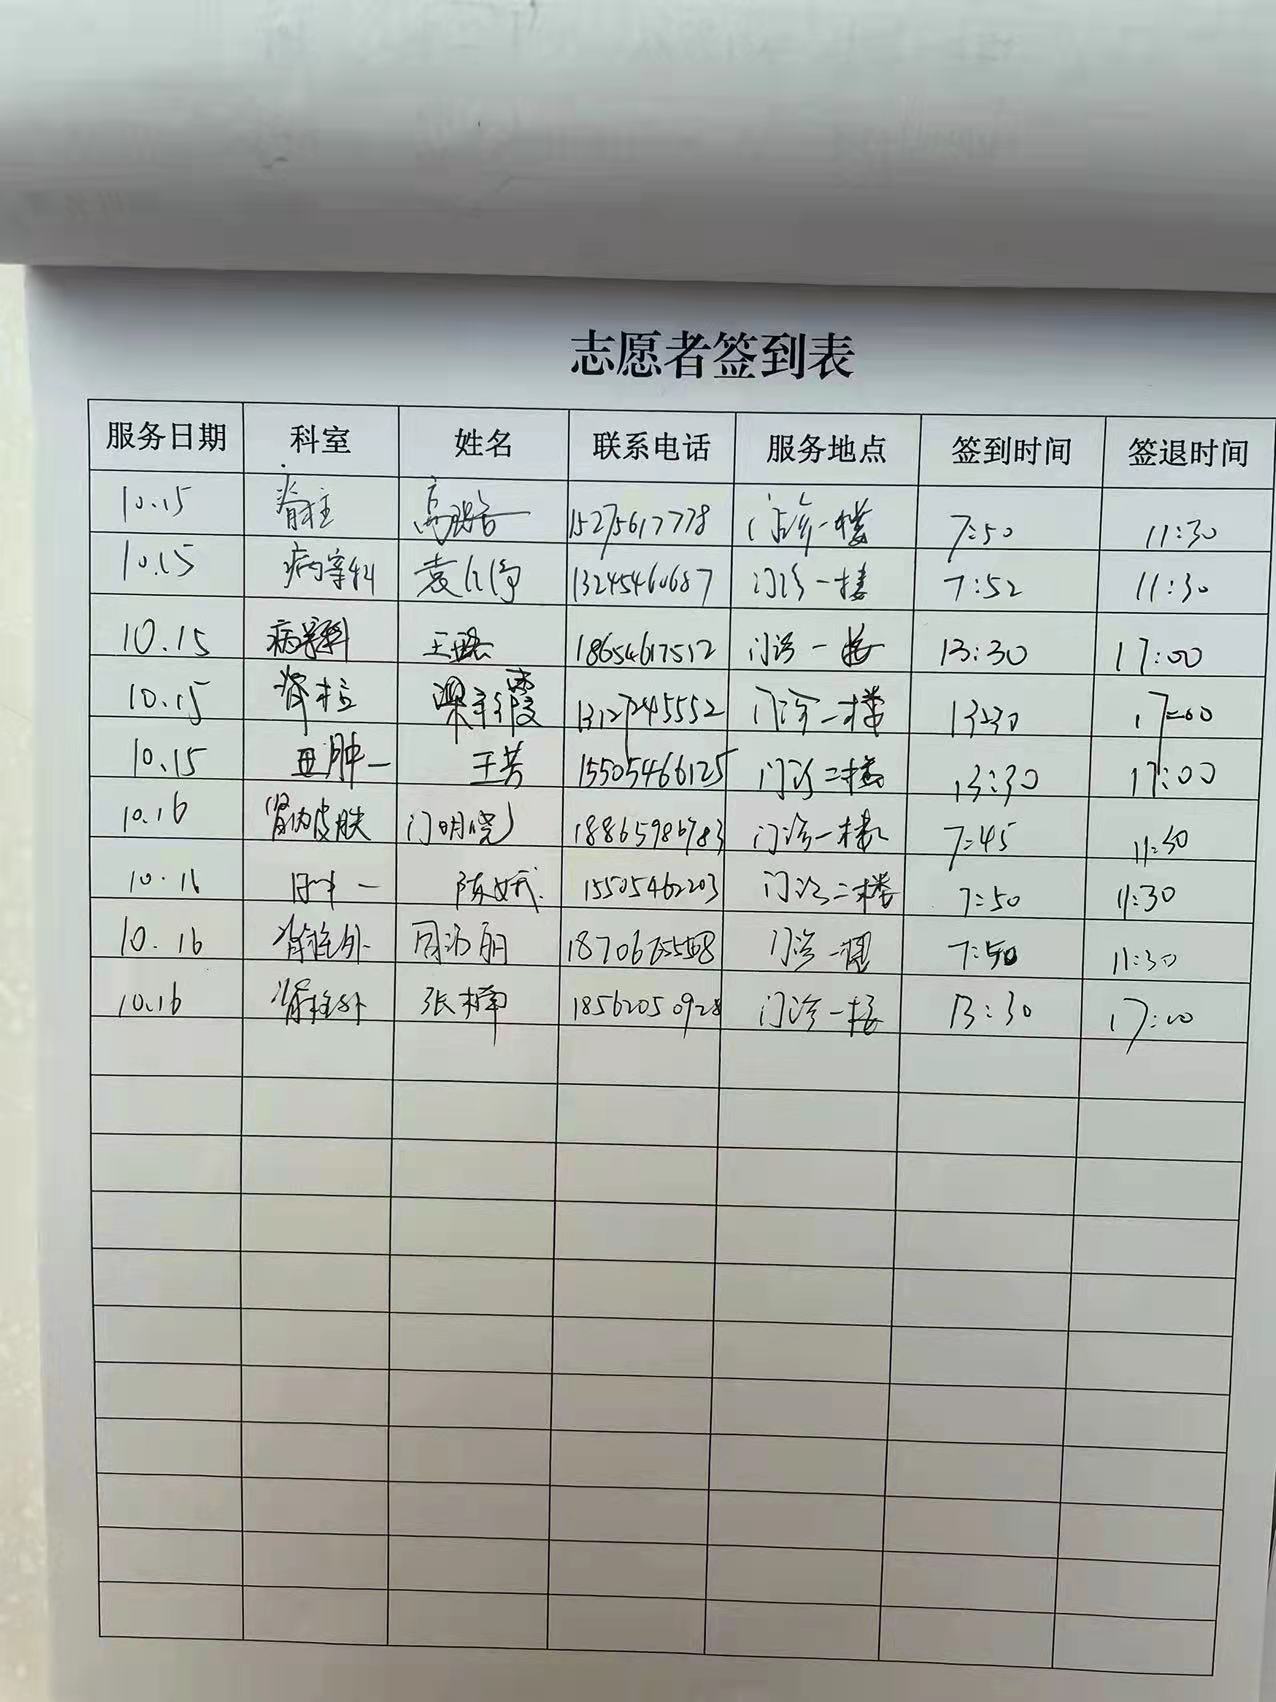 志愿者签到表
服务日期 科室 姓名 联系电话 服务地点 签到时间 签退时间
10.15 脊柱 高 15275617778 门诊一楼 7:50 11:30
10.15 病案科 袁 13245460687 门诊一楼 7:52 11:30
10.15 病案科 王 18654617512 门诊一楼 13:30 17:00
10.15 脊柱 梁 霞 13127245552 门诊一楼 13:30 17:00
10.15 肿一 王芳 15505466125 门诊二楼 13:30 17:00
10.16 肾内皮肤 门明晓 18865986783 门诊一楼 7:45 11:30
10.16 一 陈 15505462203 门诊二楼 7:50 11:30
10.16 脊柱外 周 丽 门诊一楼 7:50 11:30
10.16 脊柱外 张楠 18562050928 门诊一楼 13:30 17:00